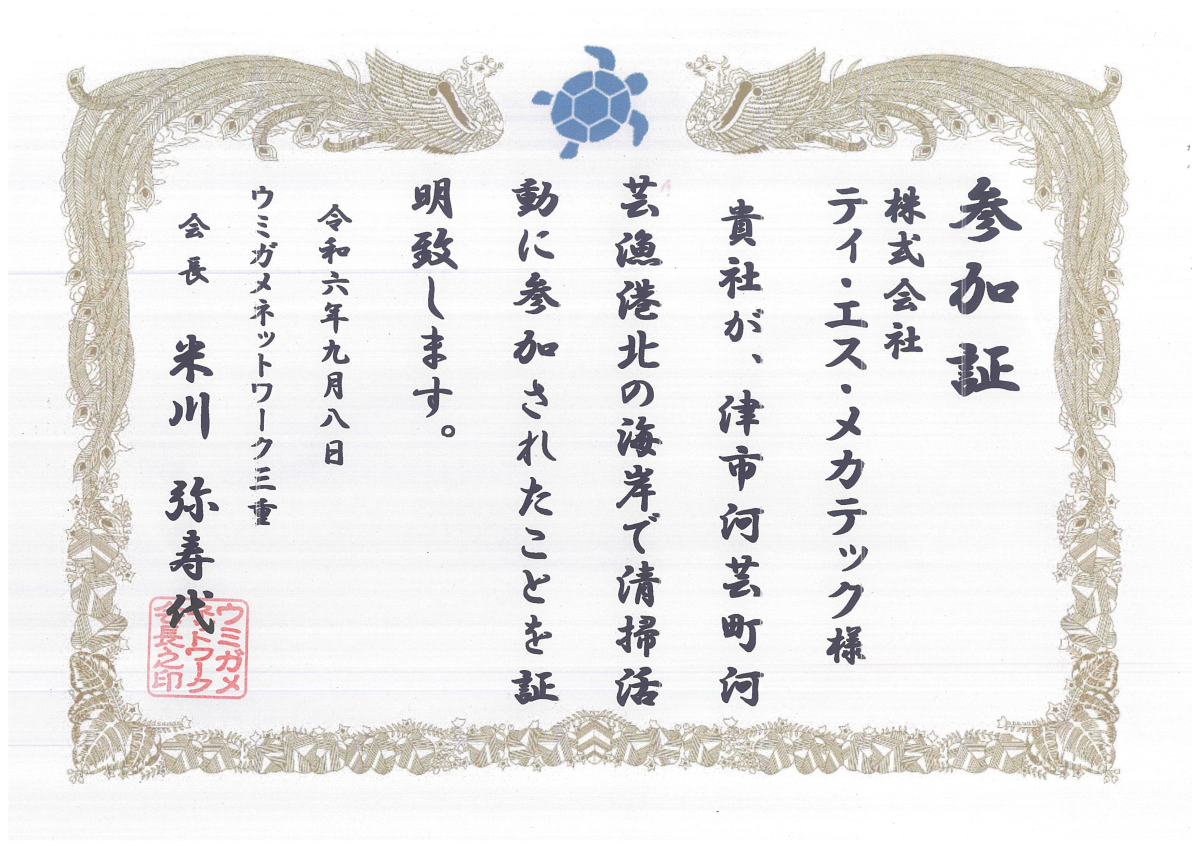 参加証
株式会社
テイ・エス・メカテック様
貴社が、津市河芸町河
芸漁港北の海岸で清掃活
動に参加されたことを証
明致します。
令和六年九月八日
ウミガメネットワーク三重
会長 米川 弥寿代
ウミガメ
ネットワーク
会長之印